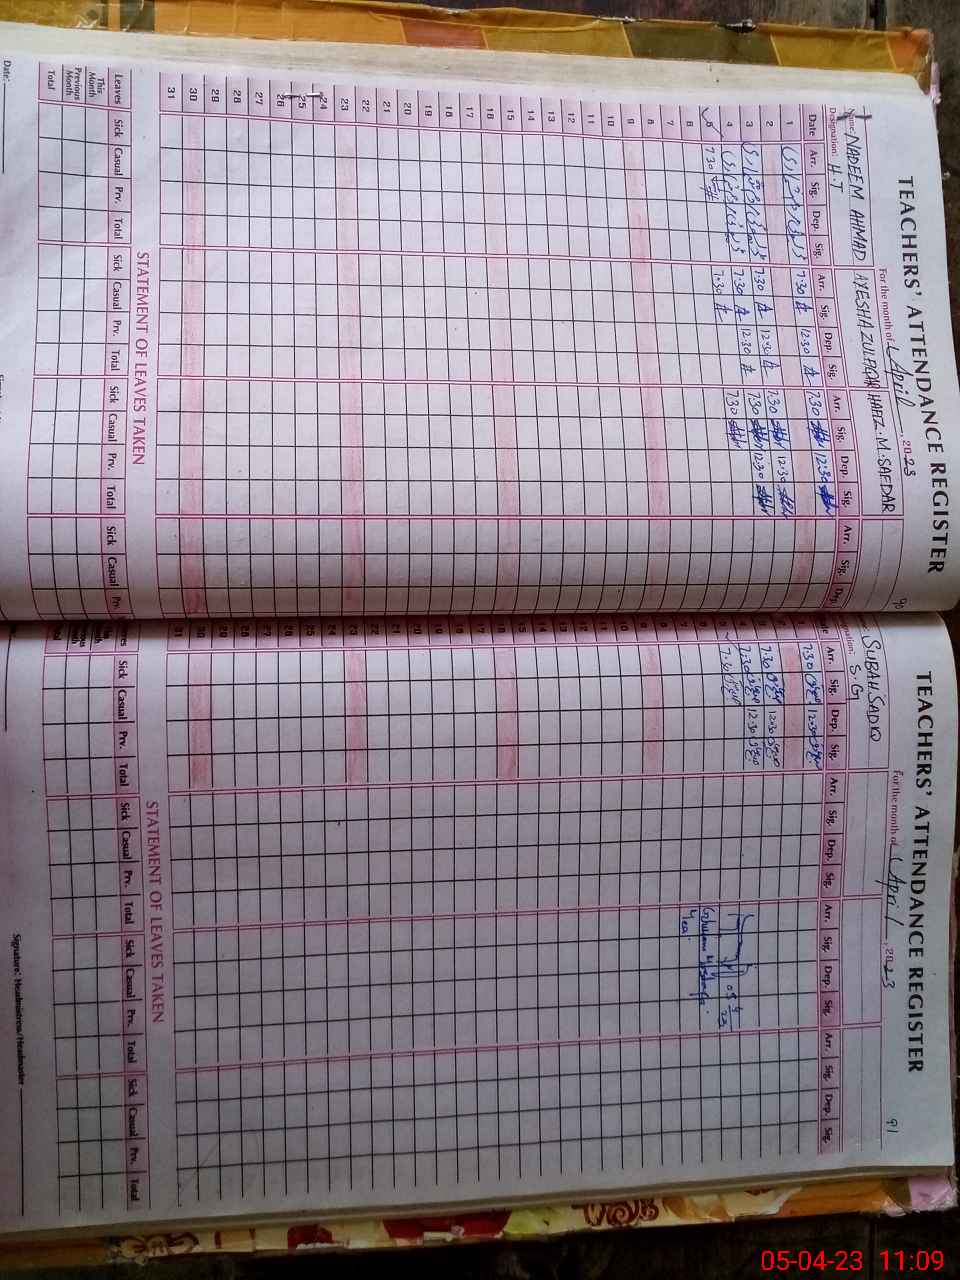 TEACHERS' ATTENDANCE REGISTER
For the month of April, 2023
90
Name: NADEEM AHMAD AYESHA ZULFQAR HAFIZ. M. SAFDAR
Designation: H.T
Date Arr. Sig. Dep. Sig. Arr. Sig. Dep. Sig. Arr. Sig. Dep. Sig. Arr. Sig. Dep.
1 7:30 12:30 7:30 12:30
2
3 7:30 12:30 7:30 12:30
4 7:30 12:30 7:30 12:30
5 7:30 7:30 7:30
6
7
8
9
10
11
12
13
14
15
16
17
18
19
20
21
22
23
24
25
26
27
28
29
30
31
STATEMENT OF LEAVES TAKEN
Leaves Sick Casual Prv. Total Sick Casual Prv. Total Sick Casual Prv. Total Sick Casual Prv.
This Month
Previous Month
Total
Date:
TEACHERS' ATTENDANCE REGISTER
For the month of April, 2023
91
SUBAH SADIQ
S.G
Arr. Sig. Dep. Sig. Arr. Sig. Dep. Sig. Arr. Sig. Dep. Sig. Arr. Sig. Dep. Sig.
1 7:30 12:30
2
3 7:30 12:30
4 7:30 12:30
5 7:30
05 4 23
STATEMENT OF LEAVES TAKEN
Sick Casual Prv. Total Sick Casual Prv. Total Sick Casual Prv. Total
Signature: Headmistress/Headmaster
05-04-23 11:09